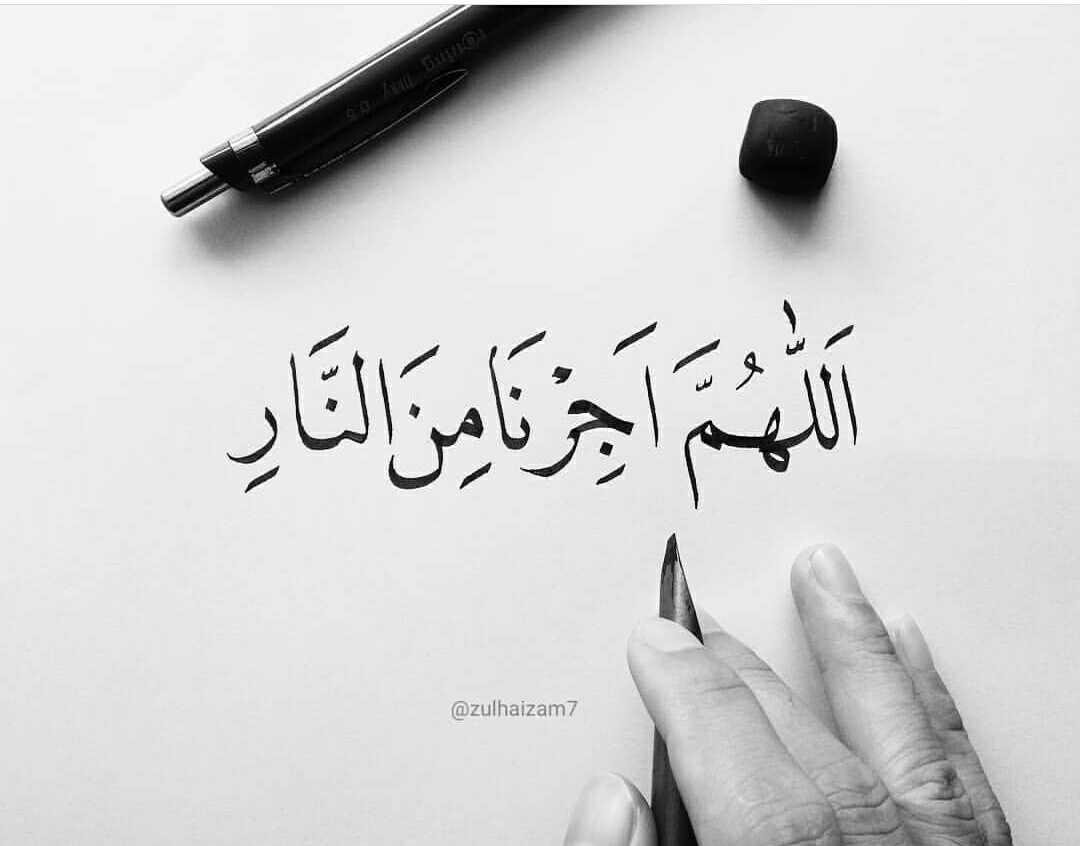 اَللّٰهُمَّ اَجِرْنَا مِنَ النَّارِ
@zulhaizam7